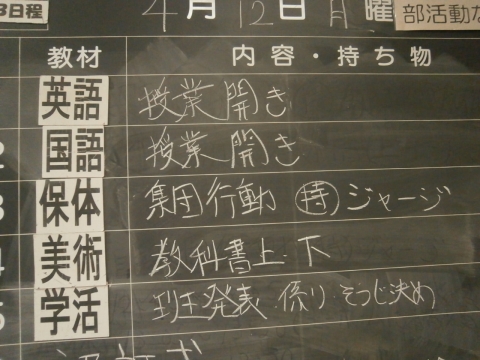 3日程 4月12日月曜 部活動な
教材 内容・持ち物
英語 授業開き
2 国語 授業開き
3 保体 集団行動 持 ジャージ
4 美術 教科書上・下
5 学活 班発表 係り・そうじ決め